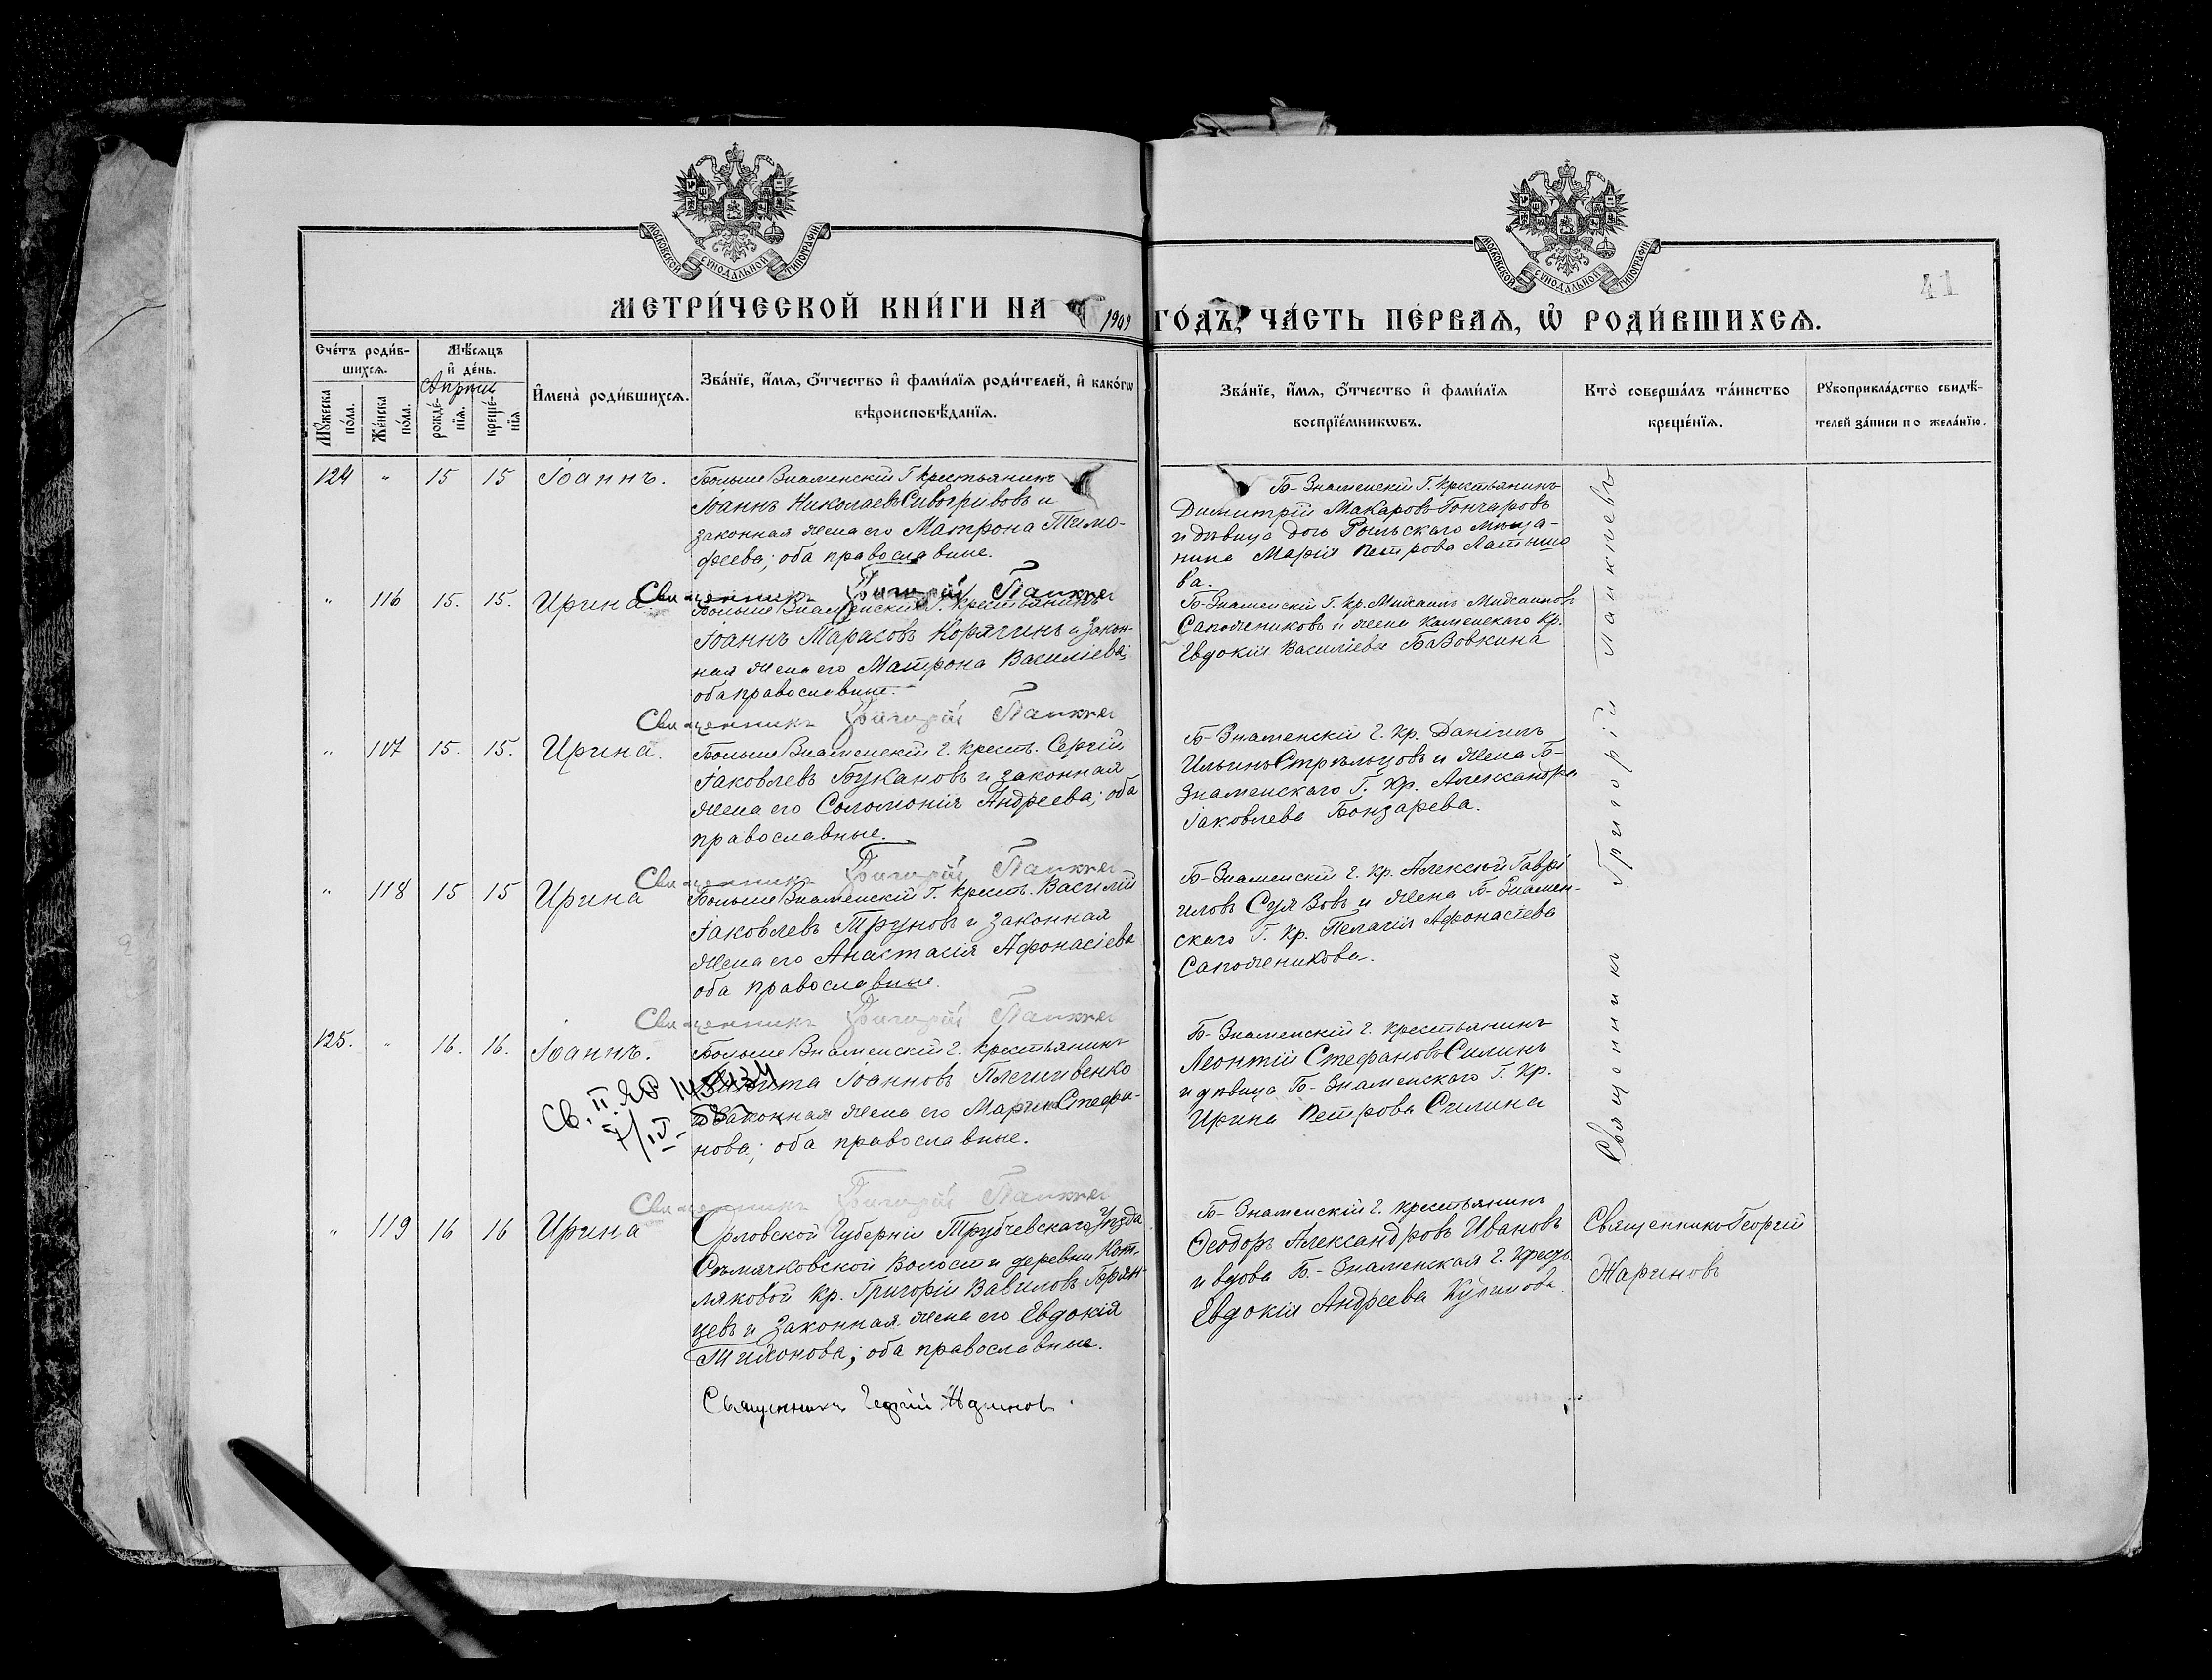 МОСКОВСКОЙ СУНОДАЛЬНОЙ ТИПОГРАФІИ
МОСКОВСКОЙ СУНОДАЛЬНОЙ ТИПОГРАФІИ
41
МЕТРИ́ЧЕСКОЙ КНИ́ГИ НА 1909 ГО́ДЪ, ЧА́СТЬ ПЕ́РВАЯ, Ѡ҆ РОДИ́ВШИХСЯ.
Сче́тъ роди́в-
шихся.
Мѣ́сяцъ
и҆ де́нь.
Апрѣль
Мꙋ́жеска
по́ла.
Же́нска
по́ла.
рожде́-
нїя.
креще́-
нїя
И҆мена̀ роди́вшихся.
Зва́нїе, и҆́мя, ѻ҆́тчество и҆ фами́лїя роди́телей, и҆ како́гѡ
вѣроисповѣ́данїя.
Зва́нїе, и҆́мя, ѻ҆́тчество и҆ фами́лїя
воспрїе́мникѡвъ.
Кто̀ соверша́лъ та́инство
креще́нїя.
Рꙋкоприкла́дство свидѣ́-
телей за́писи по жела́нїю.
124 " 15 15 Іоаннъ.
Больше Знаменскій Г. крестьянинъ
Іоаннъ Николаевъ Сивогривовъ и
законная жена его Матрона Тимо-
феева; оба православные.
Б-Знаменскій Г. крестьянинъ
Димитрій Макаровъ Гончаровъ
и дѣвица дочь Рыльскаго мѣща-
нина Марія Петрова Латыше
ва.
Священникъ Григорій Панкеев
" 116 15. 15. Ирина.
Больше Знаменскій Г. крестьянинъ
Іоаннъ Тарасовъ Корягинъ и закон-
ная жена его Матрона Василіева;
оба православные.
Б-Знаменскій Г. кр. Михаилъ
Сапожниковъ и жена Каменскаго кр.
Евдокія Василіева Бавовкина
Священникъ Григорій Панкеев
" 117 15. 15. Ирина.
Больше Знаменскій Г. крест. Сергій
Іаковлевъ Букановъ и законная
жена его Соломонія Андреева; оба
православные.
Б-Знаменскій Г. кр. Даніилъ
Ильинъ Стрѣльцовъ и жена Б-
Знаменскаго Г. кр. Александра
Іаковлева Бонзарева.
Священникъ Григорій Панкеев
" 118 15 15 Ирина
Больше Знаменскій Г. крест. Василій
Іаковлевъ Труновъ и законная
жена его Анастасія Афонасіева
оба православные.
Б-Знаменскій Г. кр. Алексѣй Гаврі
иловъ Сузвовъ и жена Б-Знамен-
скаго Г. кр. Пелагія Афонасіева
Сапожникова.
Священникъ Григорій Панкеев
125. " 16. 16. Іоаннъ.
Больше Знаменскій Г. крестьянинъ
Никита Іоанновъ
и законная жена его Марія Стефа-
нова; оба православные.
Св. II ЯР
Б-Знаменскій Г. крестьянинъ
Леонтій Стефановъ Силинъ
и дѣвица Б-Знаменскаго Г. кр.
Ирина Петрова Силина
Священникъ Григорій Панкеев
Священникъ Григорій Панкеевъ
" 119 16 16 Ирина
Орловской Губерніи Трубчевскаго Уѣзда
Семячковской Волости деревни Кот-
ляковой кр. Григорій Вавиловъ Брян-
цевъ и законная жена его Евдокія
Тихонова; оба православные.
Б-Знаменскій Г. крестьянинъ
Ѳеодоръ Александровъ Ивановъ
и вдова Б.-Знаменская Г. крест.
Евдокія Андреева Куликова.
Священникъ Георгій
Жариновъ
Священникъ Георгій Жариновъ.